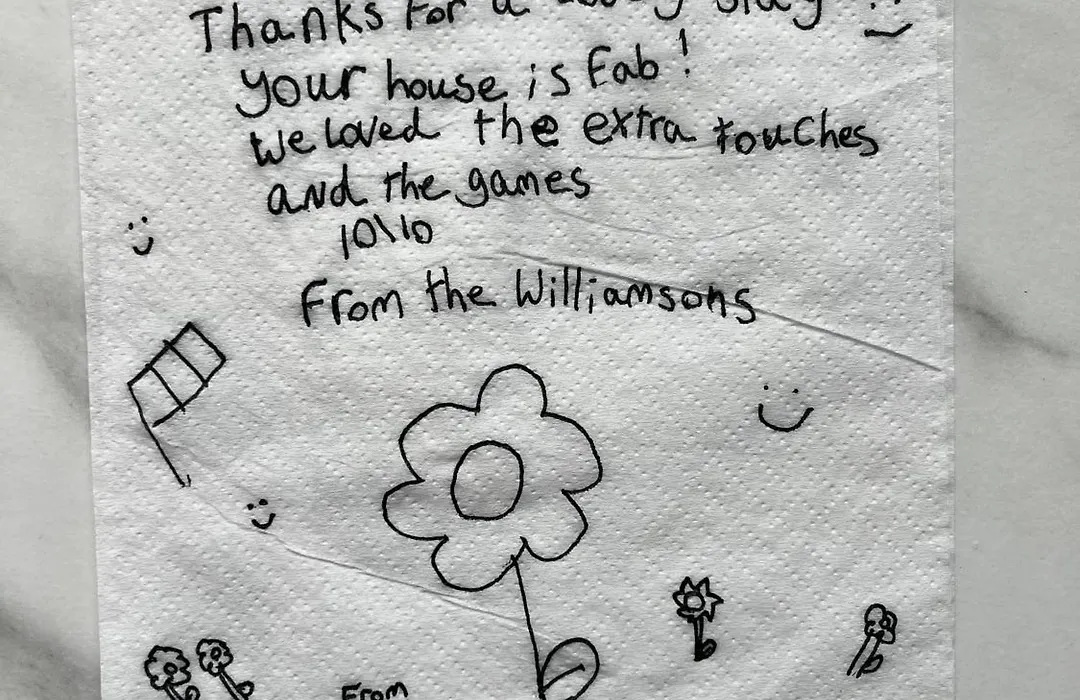 Thanks for a lovely stay
your house is Fab!
We loved the extra touches
and the games
10\10
From the Williamsons
From